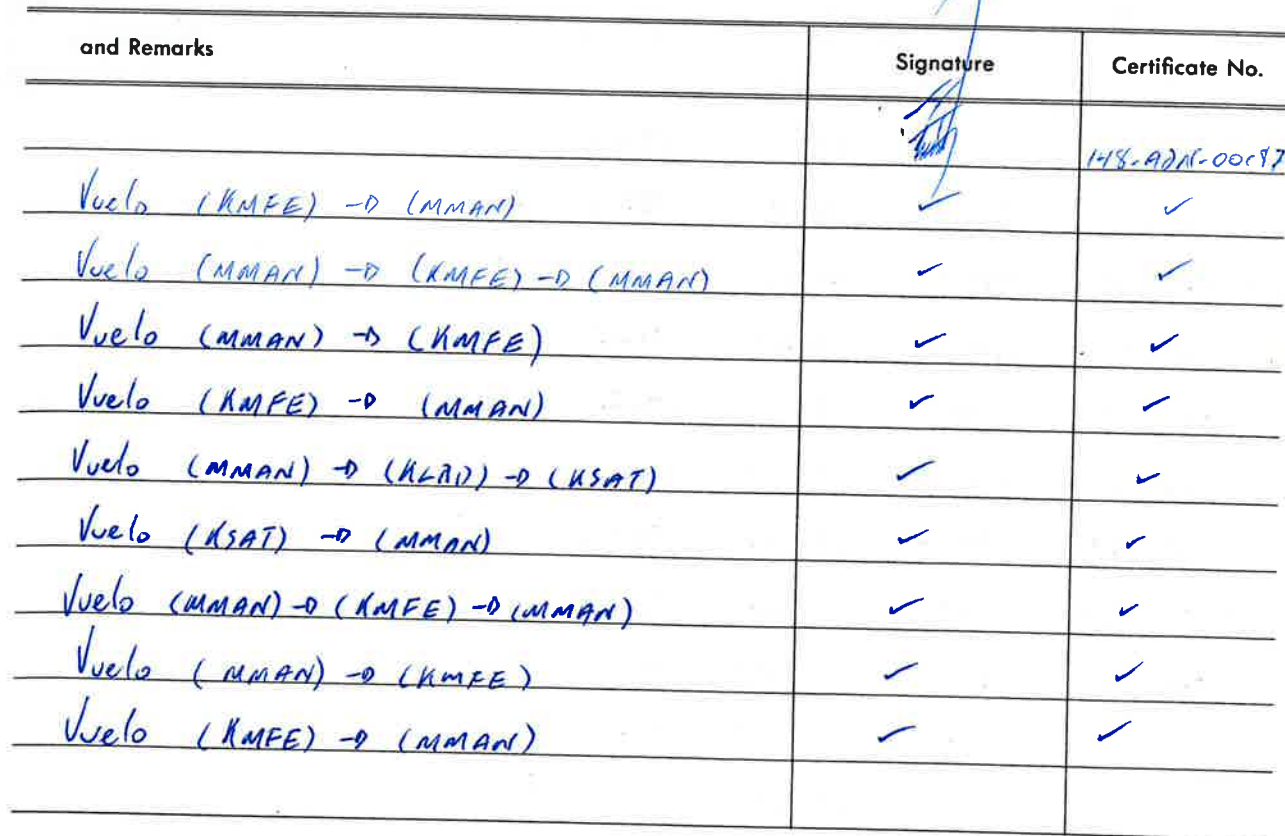 and Remarks Signature Certificate No.
Vuelo (KMFE) → (MMAN) ✓ ✓
Vuelo (MMAN) → (KMFE) → (MMAN) ✓ ✓
Vuelo (MMAN) → (KMFE) ✓ ✓
Vuelo (KMFE) → (MMAN) ✓ ✓
Vuelo (MMAN) → (KLRD) → (KSAT) ✓ ✓
Vuelo (KSAT) → (MMAN) ✓ ✓
Vuelo (MMAN) → (KMFE) → (MMAN) ✓ ✓
Vuelo (MMAN) → (KMFE) ✓ ✓
Vuelo (KMFE) → (MMAN) ✓ ✓